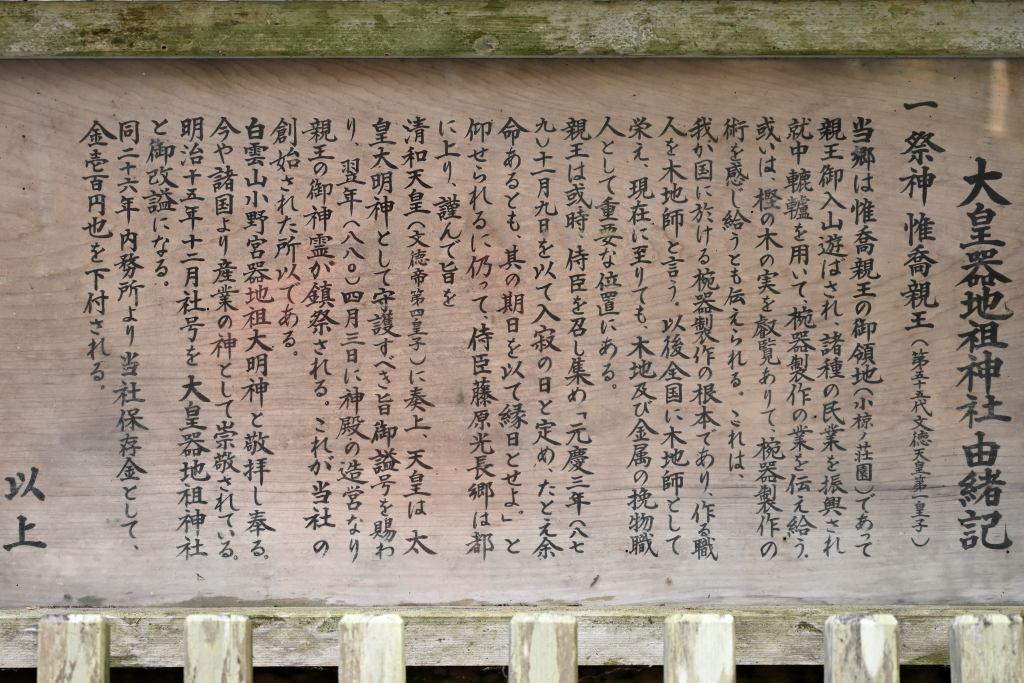 大皇器地祖神社由緒記
一 祭神 惟喬親王(第五十五代文徳天皇第一皇子)
当郷は惟喬親王の御領地(小椋ノ荘園)であって
親王御入山遊ばされ、諸種の民業を振興され
就中、轆轤を用いて、椀器製作の業を伝え給う。
或いは、樫の木の実を叡覧ありて、椀器製作の
術を感じ給うとも伝えられる。これは、
我か国に於ける椀器製作の根本であり、作る職
人を木地師と言う。以後全国に木地師として
栄え、現在に至りても、木地及び金属の挽物職
人として重要な位置にある。
親王は或時、侍臣を召し集め「元慶三年(八七
九)十一月九日を以て入寂の日と定め、たとえ余
命あるとも、其の期日を以て縁日とせよ。」と
仰せられるに仍って、侍臣藤原光長郷は都
に上り、謹んで旨を
清和天皇(文徳帝第四皇子)に奏上、天皇は 太
皇大明神として守護すべき旨御謚号を賜わ
り、翌年(八八〇)四月三日に神殿の造営なり
親王の御神霊が鎮祭される。これが当社の
創始された所以である。
白雲山小野宮器地祖大明神と敬拝し奉る。
今や諸国より産業の神として崇敬されている。
明治十五年十二月社号を 大皇器地祖神社
と御改謚になる。
同二十六年内務所より当社保存金として、
金壱百円也を下付される。
以上